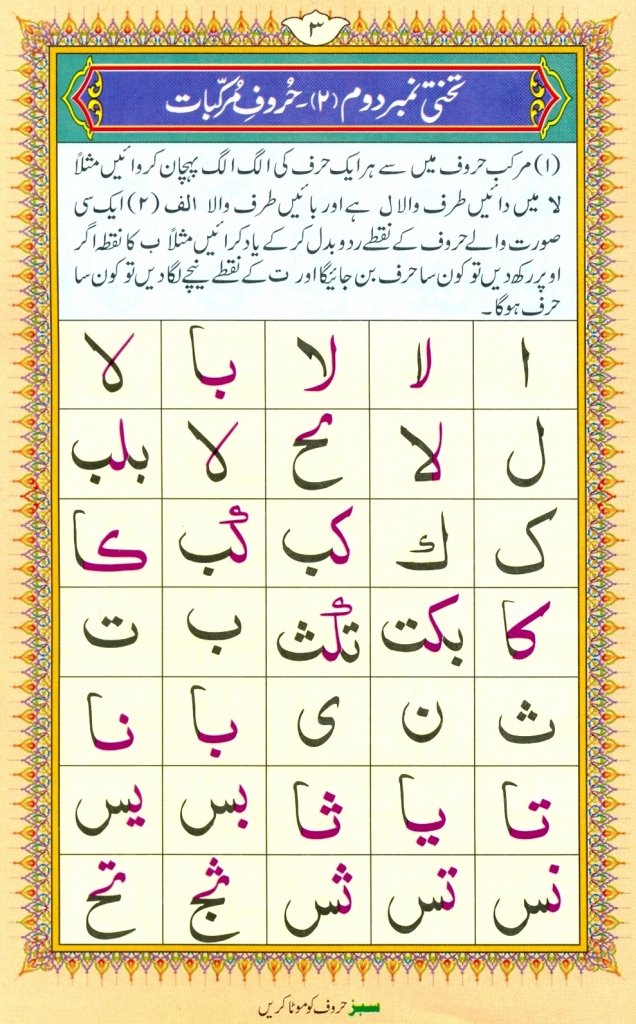 ٣
تختی نمبر دوم (۲)۔ حُروفِ مُرکّبات
(۱) مرکب حروف میں سے ہر ایک حرف کی الگ الگ پہچان کروائیں مثلاً
لا میں دائیں طرف والا ل ہے اور بائیں طرف والا الف (۲) ایک سی
صورت والے حروف کے نقطے ردوبدل کر کے یاد کرائیں مثلاً ب کا نقطہ اگر
اوپر رکھ دیں تو کون سا حرف بن جائیگا اور ت کے نقطے نیچے لگا دیں تو کون سا
حرف ہوگا۔
ا لا لا با لا
ل لا لا بلب
ک ك کب كب كا
کا بکت تكث ب ت
ث ن ی با نا
تا یا ثا بس یس
نس تس ثس ثج تح
سبز حروف کو موٹا کریں